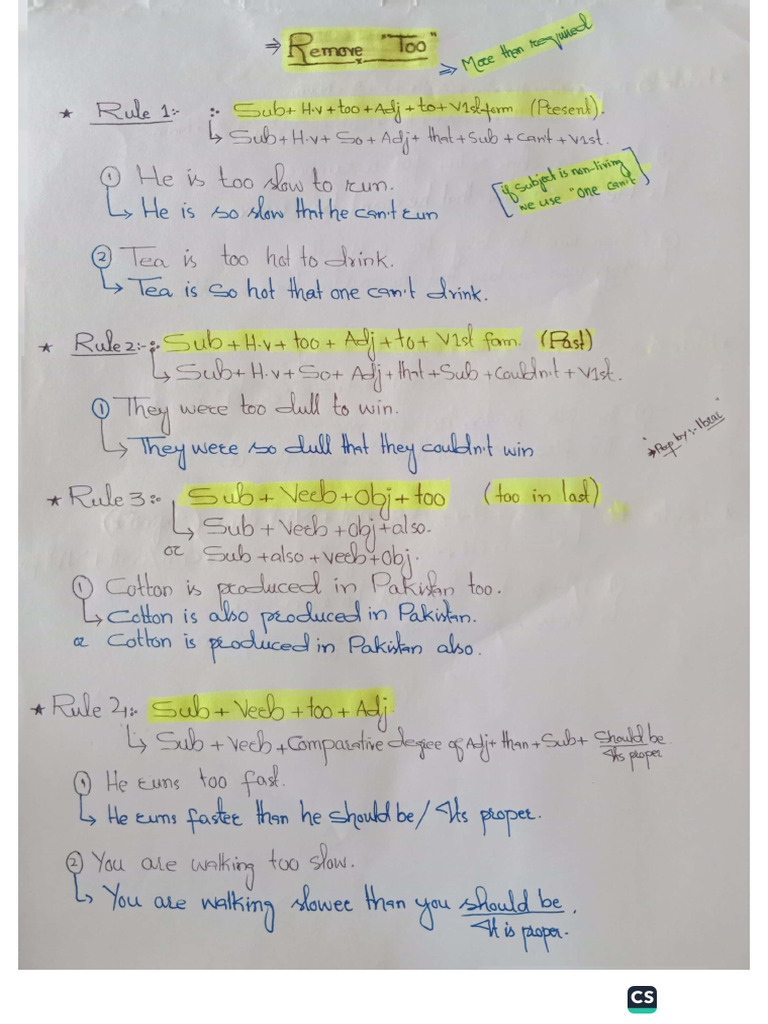 ⇒ Remove "Too"
⇒ More than required
★ Rule 1:- :- Sub + H.v + too + Adj + to + V1st form (Present).
↳ Sub + H.v + So + Adj + that + Sub + can't + V1st.
① He is too slow to run.
[if subject is non-living
we use "one can't"]
↳ He is so slow that he can't run
② Tea is too hot to drink.
↳ Tea is so hot that one can't drink.
★ Rule 2:- :- Sub + H.v + too + Adj + to + V1st form. (Past)
↳ Sub + H.v + So + Adj + that + Sub + Couldn't + V1st.
① They were too dull to win.
↳ They were so dull that they couldn't win
→ Prep by:-
★ Rule 3:- Sub + Verb + Obj + too (too in last)
↳ Sub + Verb + Obj + also.
or Sub + also + verb + Obj.
① Cotton is produced in Pakistan too.
↳ Cotton is also produced in Pakistan.
or Cotton is produced in Pakistan also.
★ Rule 4:- Sub + Verb + too + Adj.
↳ Sub + Verb + Comparative degree of Adj + than + Sub + Should be / Its proper
① He runs too fast.
↳ He runs faster than he should be / Its proper.
② You are walking too slow.
↳ You are walking slower than you should be / It is proper.
CS